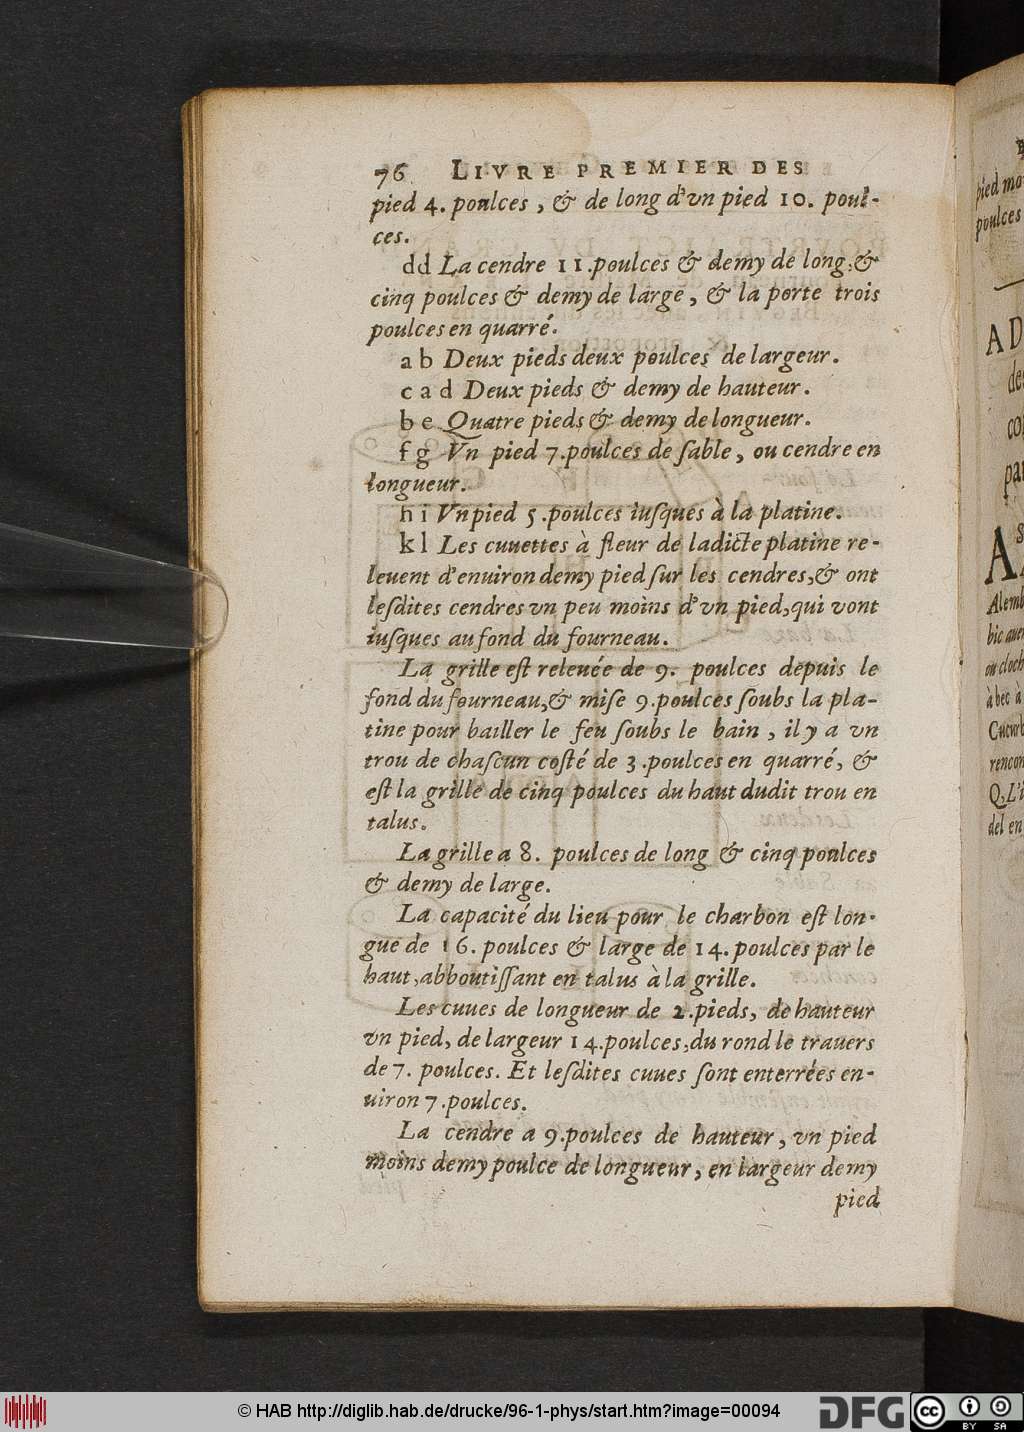 76 LIVRE PREMIER DES
pied 4. poulces, & de long d'vn pied 10. poul-
ces.
dd La cendre 11.poulces & demy de long,&
cinq poulces & demy de large, & la porte trois
poulces en quarré.
a b Deux pieds deux poulces de largeur.
c a d Deux pieds & demy de hauteur.
b e Quatre pieds & demy de longueur.
f g Vn pied 7.poulces de ſable, ou cendre en
longueur.
h i Vn pied 5.poulces iuſques à la platine.
k l Les cuuettes à fleur de ladicte platine re-
leuent d'enuiron demy pied ſur les cendres,& ont
leſdites cendres vn peu moins d'vn pied,qui vont
iuſques au fond du fourneau.
La grille eſt releuée de 9. poulces depuis le
fond du fourneau,& miſe 9.poulces ſoubs la pla-
tine pour bailler le feu ſoubs le bain, il y a vn
trou de chaſcun coſté de 3.poulces en quarré, &
eſt la grille de cinq poulces du haut dudit trou en
talus.
La grille a 8. poulces de long & cinq poulces
& demy de large.
La capacité du lieu pour le charbon eſt lon-
gue de 16. poulces & large de 14. poulces par le
haut,abboutiſſant en talus à la grille.
Les cuues de longueur de 2.pieds, de hauteur
vn pied, de largeur 14.poulces,du rond le trauers
de 7. poulces. Et leſdites cuues ſont enterrées en-
uiron 7.poulces.
La cendre a 9.poulces de hauteur, vn pied
moins demy poulce de longueur, en largeur demy
pied
pied
poulces
A
Alemb
ou cloch
à bec à
rencon
Q,L'i
del en
© HAB http://diglib.hab.de/drucke/96-1-phys/start.htm?image=00094
DFG
cc BY SA